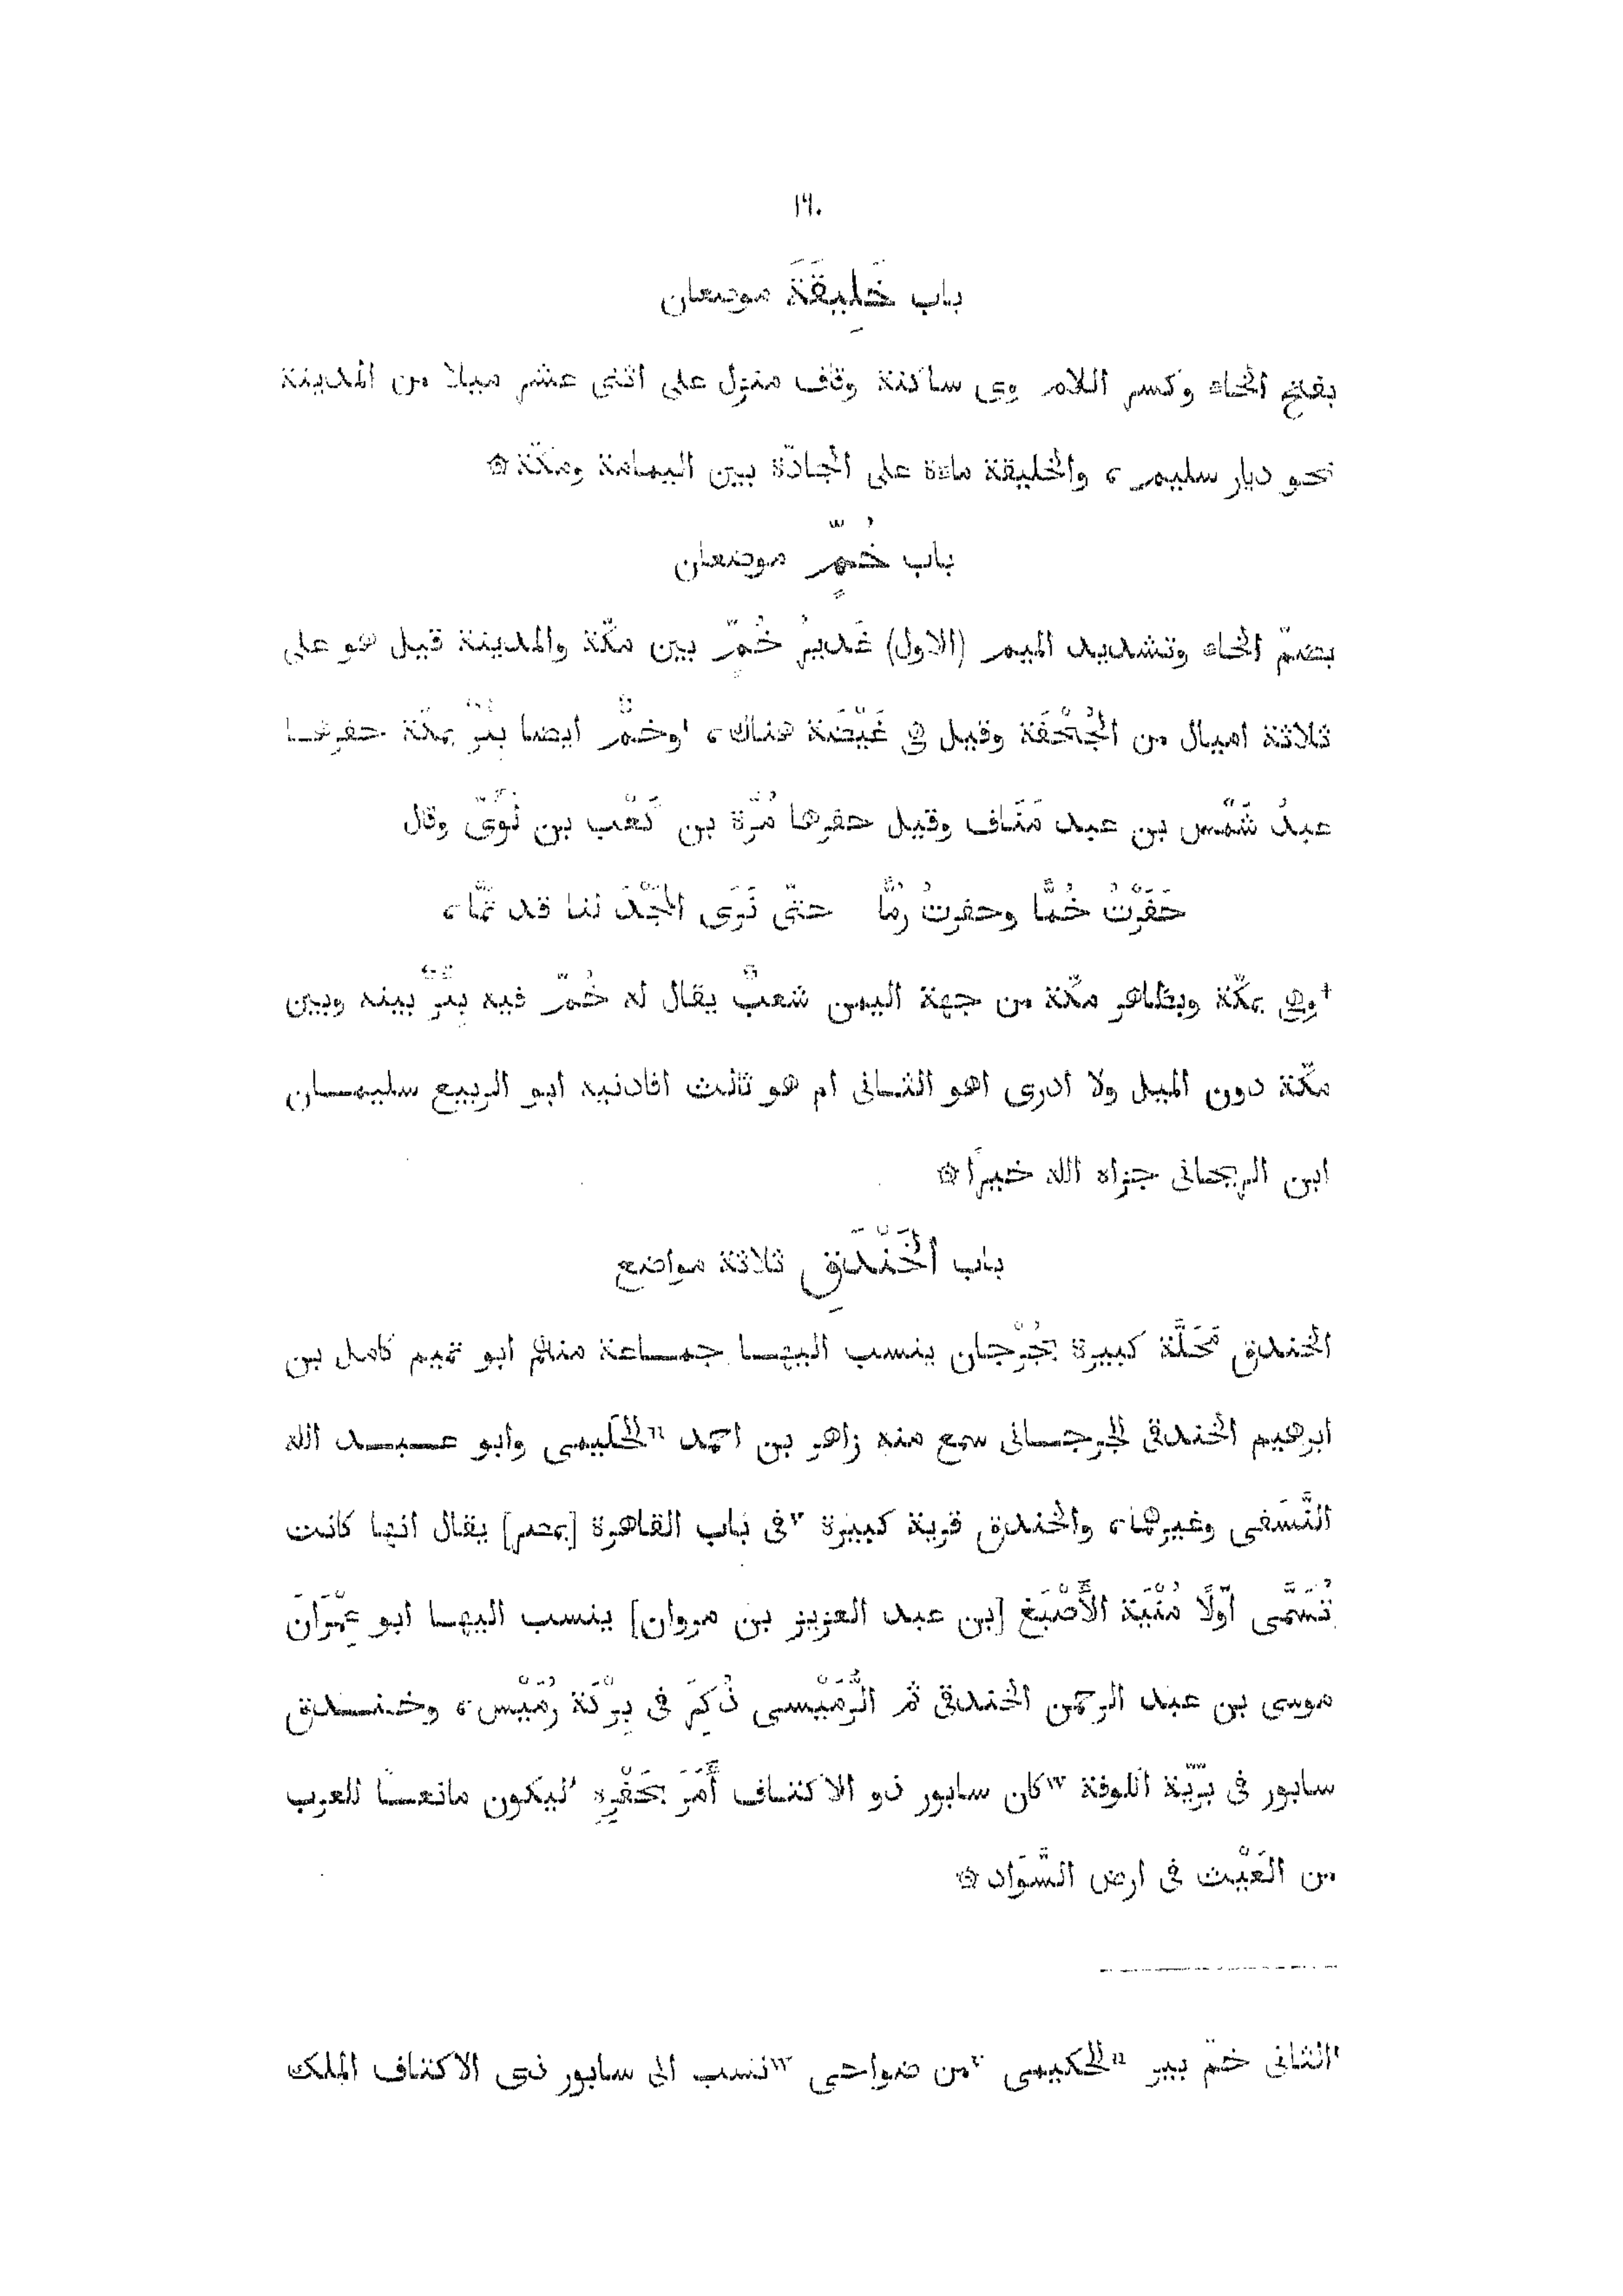 ١٦٠
باب خَلِيقَةَ موضعان
بفتح الخاء وكسر اللام وى ساكنة وقاف منزل على اثنى عشر ميلا من المدينة
نحو ديار سليم، والخليقة ماءة على الجادّة بين اليمامة ومكّة ۞
باب خُمٍّ موضعان
بضمّ الخاء وتشديد الميم (الاول) غَديرُ خُمٍّ بين مكّة والمدينة قيل هو على
ثلاثة اميال من الجُحْفَة وقيل هى غَيْضَة هناك، ¹وخمٌّ ايضا بئرٌ بمكّة حفرها
عبدُ شَمْس بن عبد مَنَاف وقيل حفرها مُرّة بن كَعْب بن لُوَّىّ وقال
حَفَرْتُ خُمًّا وحفرتُ رُمَّا حتّى نَرَى المَجْدَ لنا قد تَمَّا،
†وهى بمكّة وبظاهر مكّة من جهة اليمن شعبٌ يقال له خُمّ فيه بِئرٌ بينه وبين
مكّة دون الميل ولا ادرى اهو الثانى ام هو ثالث افادنيه ابو الربيع سليمان
ابن الريحانى جزاه الله خيرًا ۞
باب الخَنْدَقِ ثلاثة مواضع
الخندق مَحَلَّة كبيرة بجُرْجان ينسب اليها جماعة منهم ابو تميم كامل بن
ابرهيم الخندقى الجرجانى سمع منه زاهر بن احمد ¹¹الحَليمى وابو عبد الله
النَّسَفى وغيرهما، والخندق قرية كبيرة ²فى باب القاهرة [بمصر] يقال انها كانت
تُسَمَّى اوّلًا مُنْيَة الأَصْبَغ [بن عبد العزيز بن مروان] ينسب اليها ابو عِمْرَانَ
موسى بن عبد الرحمن الخندقى ثم الرُّمَيْسى ذُكِرَ فى بِرْكَة رُمَيْس، وخندق
سابور فى بَرّيّة الكوفة ¹²كان سابور ذو الاكتاف أَمَرَ بحَفْرِهِ ليكون مانعا للعرب
من العَيْث فى ارض السَّوَاد ۞
¹الثانى خمّ بير ¹¹الحكيمى ²من ضواحى ¹²نسب الى سابور ذى الاكتاف الملك